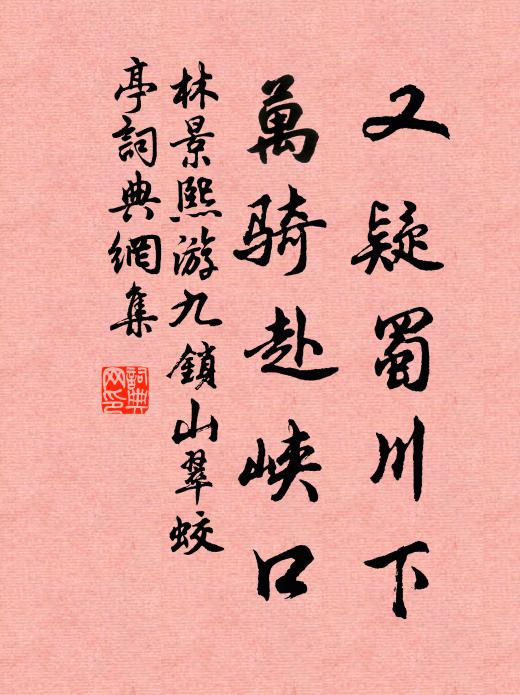 又疑蜀川下
萬骑赴峡口
林景熙游九鎖山翠蛟
亭詞典網集
詞典
网印